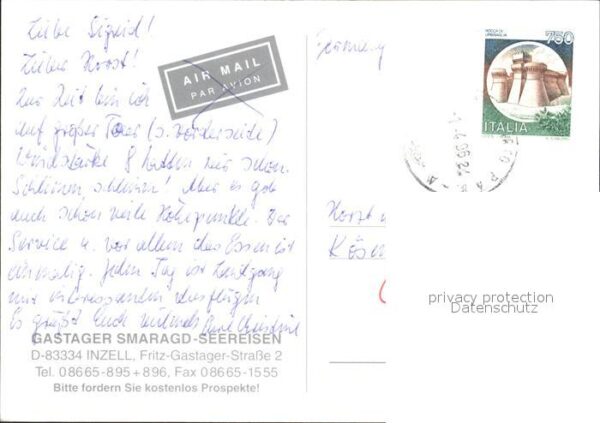 Liebe Sigrid!
Lieber Horst!
Zur Zeit bin ich
auf großer Tour (s. Vorderseite)
Windstärke 8 hatten wir schon.
Schlimm schlimm! Aber es gab
auch schon viele Höhepunkte. Der
Service u. vor allem das Essen ist
einmalig. Jeden Tag ist Landgang
mit interessanten Ausflügen
Es grüßt Euch
AIR MAIL
PAR AVION
Germany
ROCCA DI URBISAGLIA
750
ITALIA
Horst
privacy protection
Datenschutz
GASTAGER SMARAGD-SEEREISEN
D-83334 INZELL, Fritz-Gastager-Straße 2
Tel. 08665-895+896, Fax 08665-1555
Bitte fordern Sie kostenlos Prospekte!